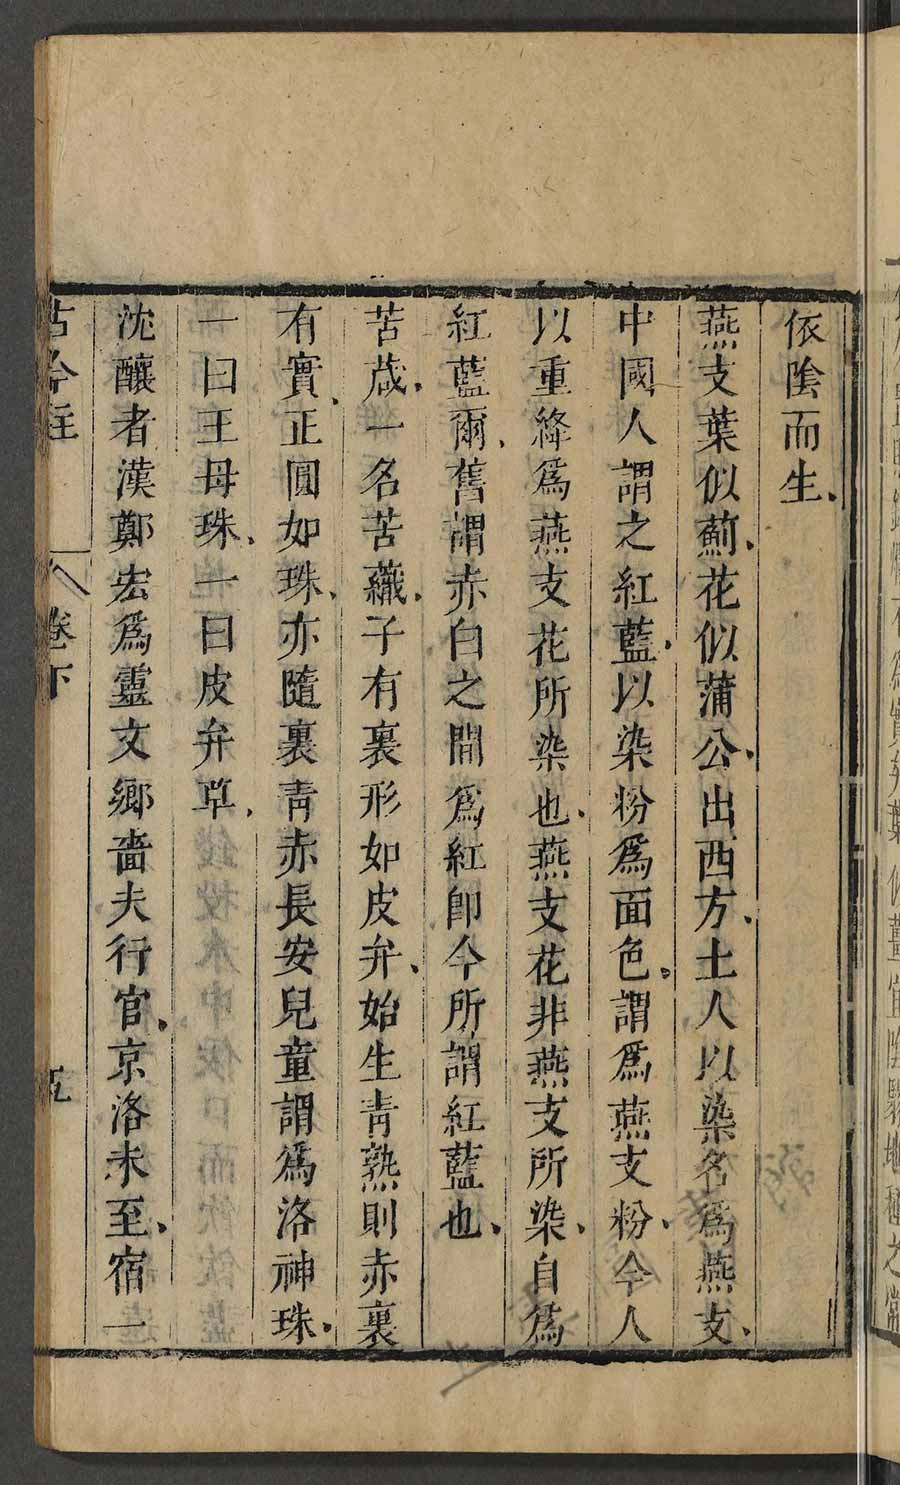 依陰而生、
燕支葉似薊、花似蒲公、出西方、土人以染名爲燕支、
中國人謂之紅藍、以染粉爲面色。謂爲燕支粉、今人
以重絳爲燕支花所染也、燕支花非燕支所染、自爲
紅藍爾、舊謂赤白之間爲紅卽今所謂紅藍也、
苦葴、一名苦蘵、子有裏形如皮弁、始生青熟則赤裏
有實、正圓如珠、亦隨裏青赤長安兒童謂爲洛神珠、
一曰王母珠、一曰皮弁草、
沈釀者漢鄭宏爲靈文鄉嗇夫行官、京洛未至、宿一
古今注 卷下 五